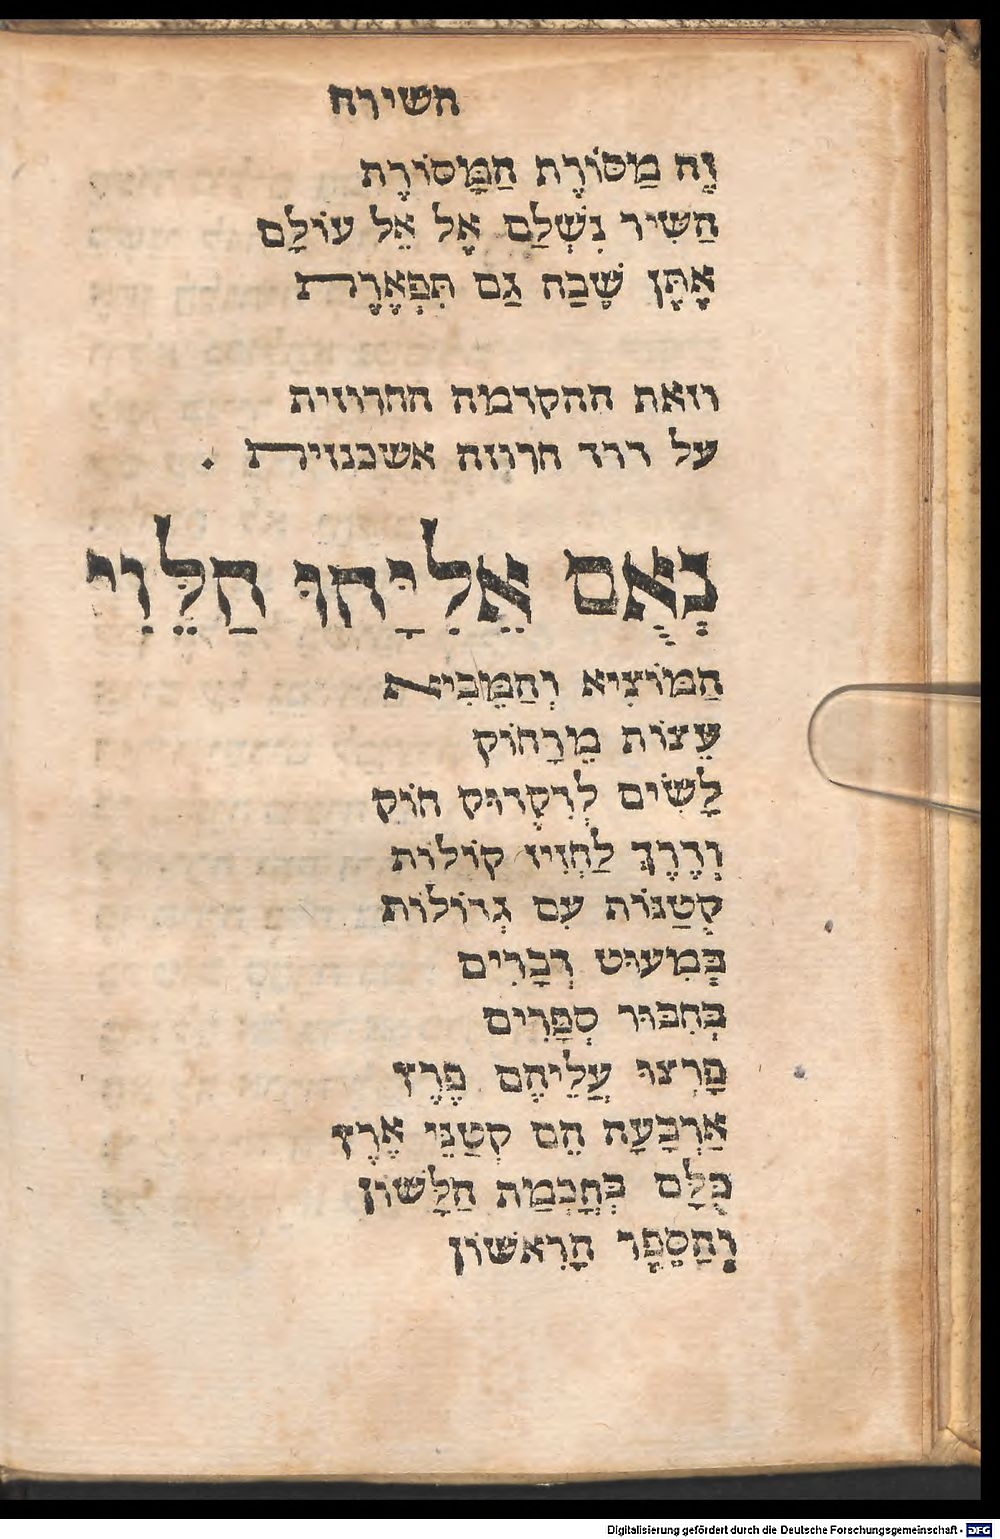 השירה
זֶה מַסּוֹרֶת הַמָּסוֹרֶת
הַשִּׁיר נִשְׁלַם אֶל אֵל עוֹלָם
אֶתֵּן שֶׁבַח גַּם תִּפְאֶרֶת
וזאת ההקדמה החרוזית
על דרך חרוזה אשכנזית .
נְאֻם אֵלִיָּהוּ הַלֵּוִי
הַמּוֹצִיא וְהַמֵּבִיא
עֵצוֹת מֵרָחוֹק
לָשִׂים לְדִקְדּוּק חוֹק
וְדֶרֶךְ לַחֲזִיז קוֹלוֹת
קְטַנּוֹת עִם גְּדוֹלוֹת
בְּמִעוּט דְּבָרִים
בְּחִבּוּר סְפָרִים
פָּרְצוּ עֲלֵיהֶם פֶּרֶץ
אַרְבָּעָה הֵם קְטַנֵּי אֶרֶץ
כֻּלָּם בְּחָכְמַת הַלָּשׁוֹן
וְהַסֵּפֶר הָרִאשׁוֹן
Digitalisierung gefördert durch die Deutsche Forschungsgemeinschaft - DFG